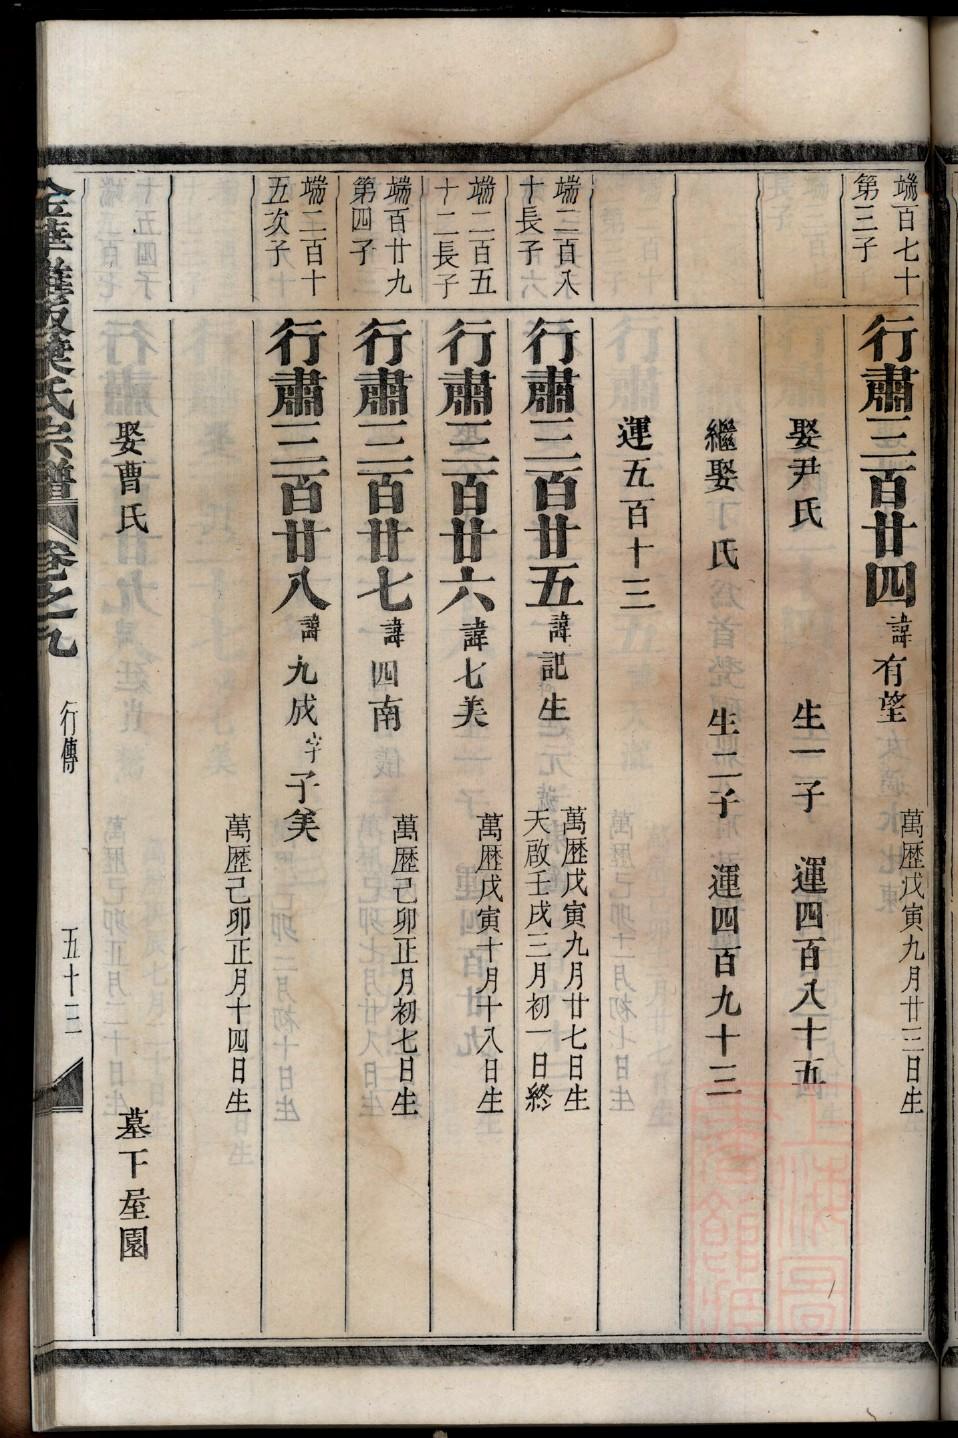 端百七十
第三子
行肅三百廿四諱有望
萬歷戊寅九月廿三日生
娶尹氏 生一子 運四百八十五
繼娶丁氏 生二子 運四百九十三
運五百十三
端二百八
十長子
行肅三百廿五諱記生
萬歷戊寅九月廿七日生
天啟壬戌三月初一日終
端二百五
十二長子
行肅三百廿六諱七美
萬歷戊寅十月十八日生
端百廿九
第四子
行肅三百廿七諱四南
萬歷己卯正月初七日生
端二百十
五次子
行肅三百廿八諱九成字子美
萬歷己卯正月十四日生
娶曹氏 墓下屋園
金華 氏宗譜 卷之九 行傳 五十三
上海圖書館藏